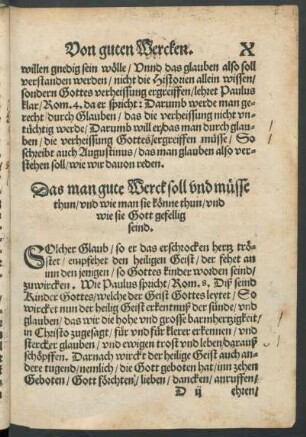 Von guten Wercken. X
willen gnedig sein wölle / Vnnd das glauben also soll
verstanden werden / nicht die Historien allein wissen /
sondern Gottes verheissung ergreiffen / lehret Paulus
klar / Rom. 4. da er spricht: Darumb werde man ge⸗
recht / durch Glauben / das die verheissung nicht vn⸗
tüchtig werde / Darumb will er / das man durch glau⸗
ben / die verheissung Gottes / ergreiffen müsse / So
schreibt auch Augustinus / das man glauben also ver⸗
stehen soll / wie wir dauon reden.
Das man gute Werck soll vnd müsse
thun / vnd wie man sie könne thun / vnd
wie sie Gott gefellig
seind.
SOlcher Glaub / so er das erschrocken hertz trö⸗
stet / empfehet den heiligen Geist / der fehet an
inn den jenigen / so Gottes kinder worden seind /
zuwircken. Wie Paulus spricht / Rom. 8. Diß seind
Kinder Gottes / welche der Geist Gottes leytet / So
wircket nun der heilig Geist erkentnuß der sünde / vnd
glauben / das wir die hohe vnd grosse barmhertzigkeit /
in Christo zugesagt / für vnd für klerer erkennen / vnd
stercker glauben / vnd ewigen trost vnd leben darauß
schöpffen. Darnach wirckt der heilige Geist auch an⸗
dere tugend / nemlich / die Gott geboten hat / inn zehen
Geboten / Gott förchten / lieben / dancken / anruffen /
D ij ehren /